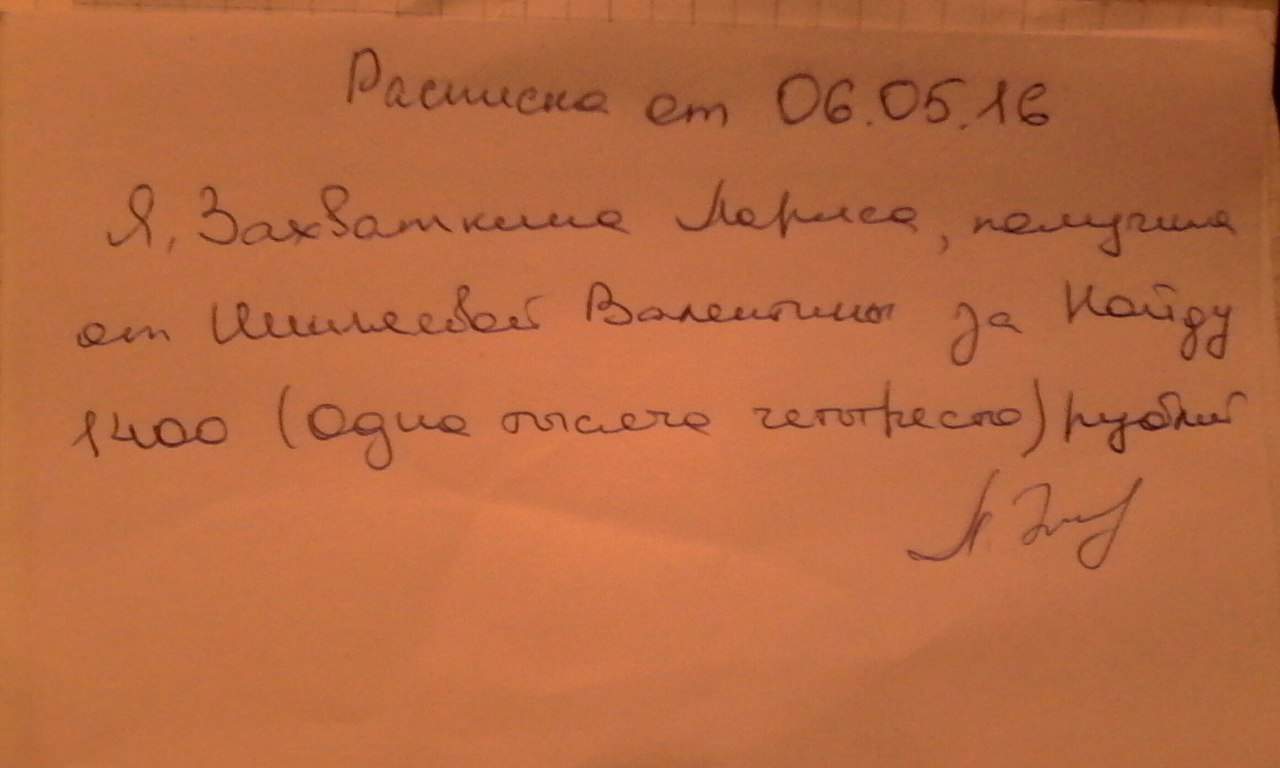 Расписка от 06.05.16
Я, Захваткина Лариса, получила
от Валентины за Найду
1400 (одна тысяча четыреста) рублей